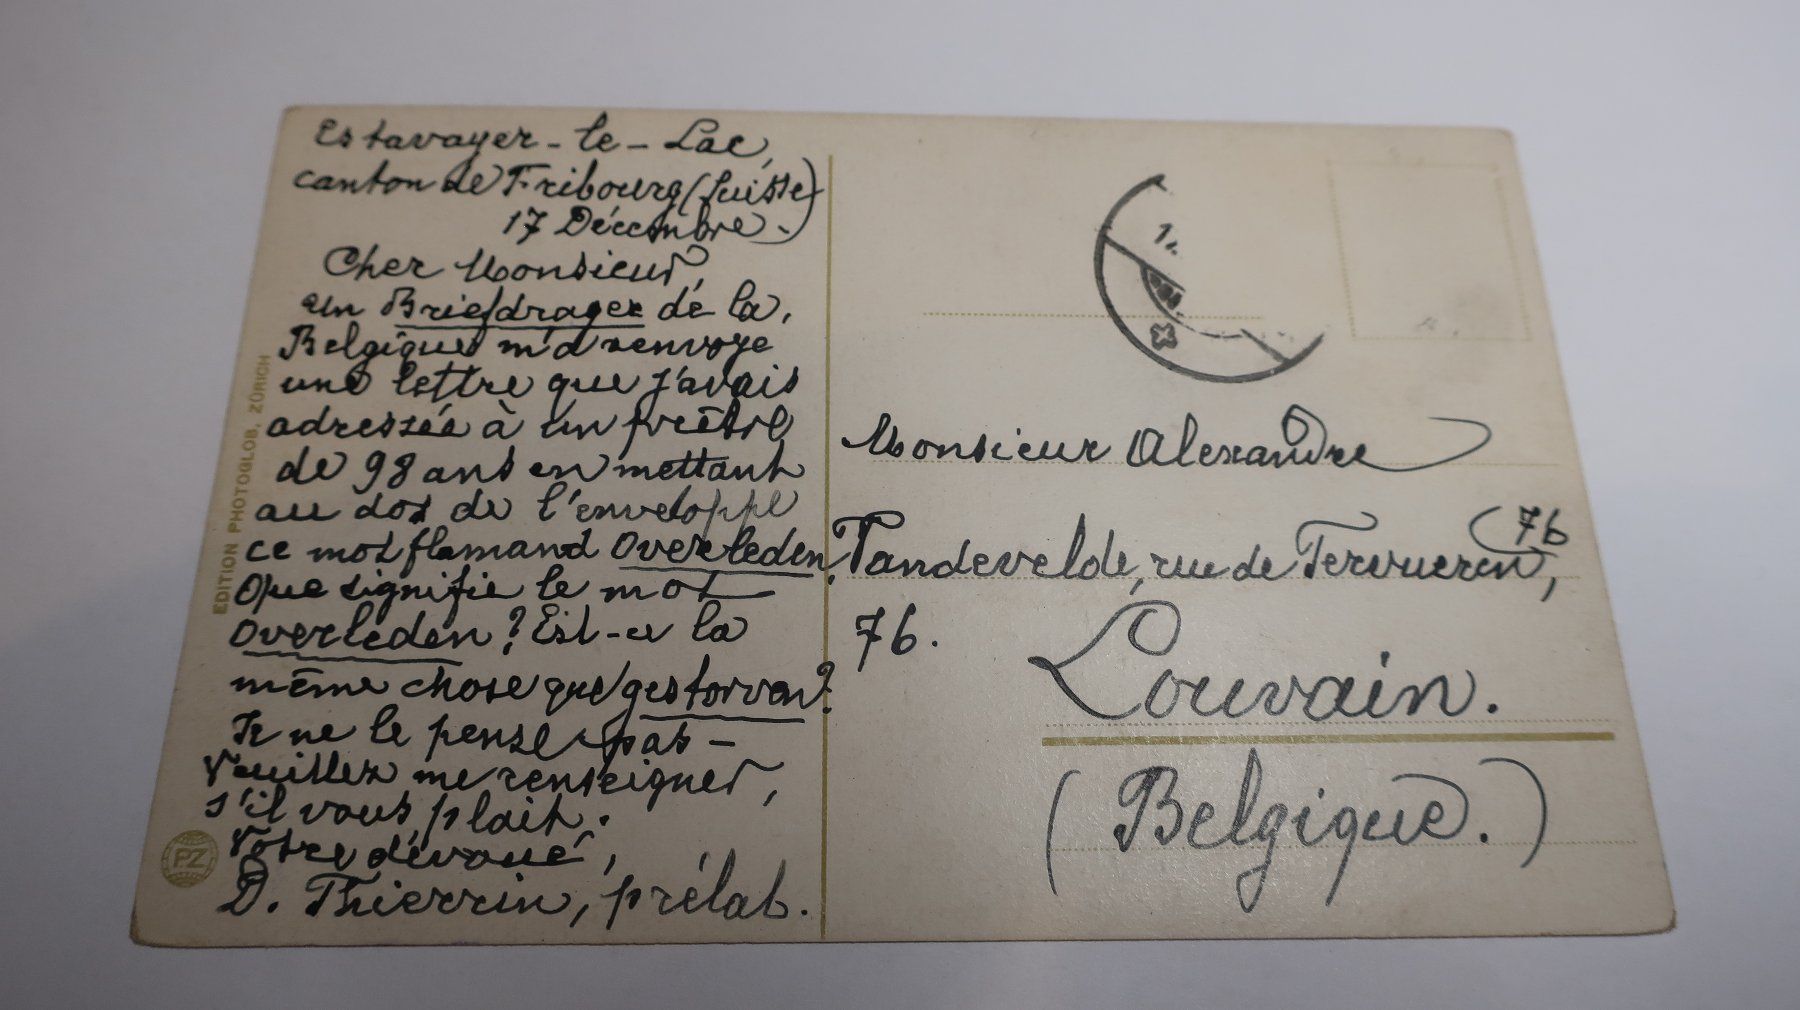 Estavayer-le-Lac,
canton de Fribourg (Suisse)
17 Décembre.
Cher Monsieur,
un Briefdrager de la
Belgique m'a renvoyé
une lettre que j'avais
adressée à un prêtre
de 98 ans en mettant
au dos de l'enveloppe
ce mot flamand overleden.
Que signifie le mot
overleden? Est-ce la
même chose que gestorven?
Je ne le pense pas -
Veuillez me renseigner,
s'il vous plait.
Votre dévoué,
D. Thierrin, prélat.
EDITION PHOTOGLOB, ZÜRICH
PZ
Monsieur Alexandre
Vandevelde, rue de Tervueren, 76
76.
Louvain.
(Belgique.)